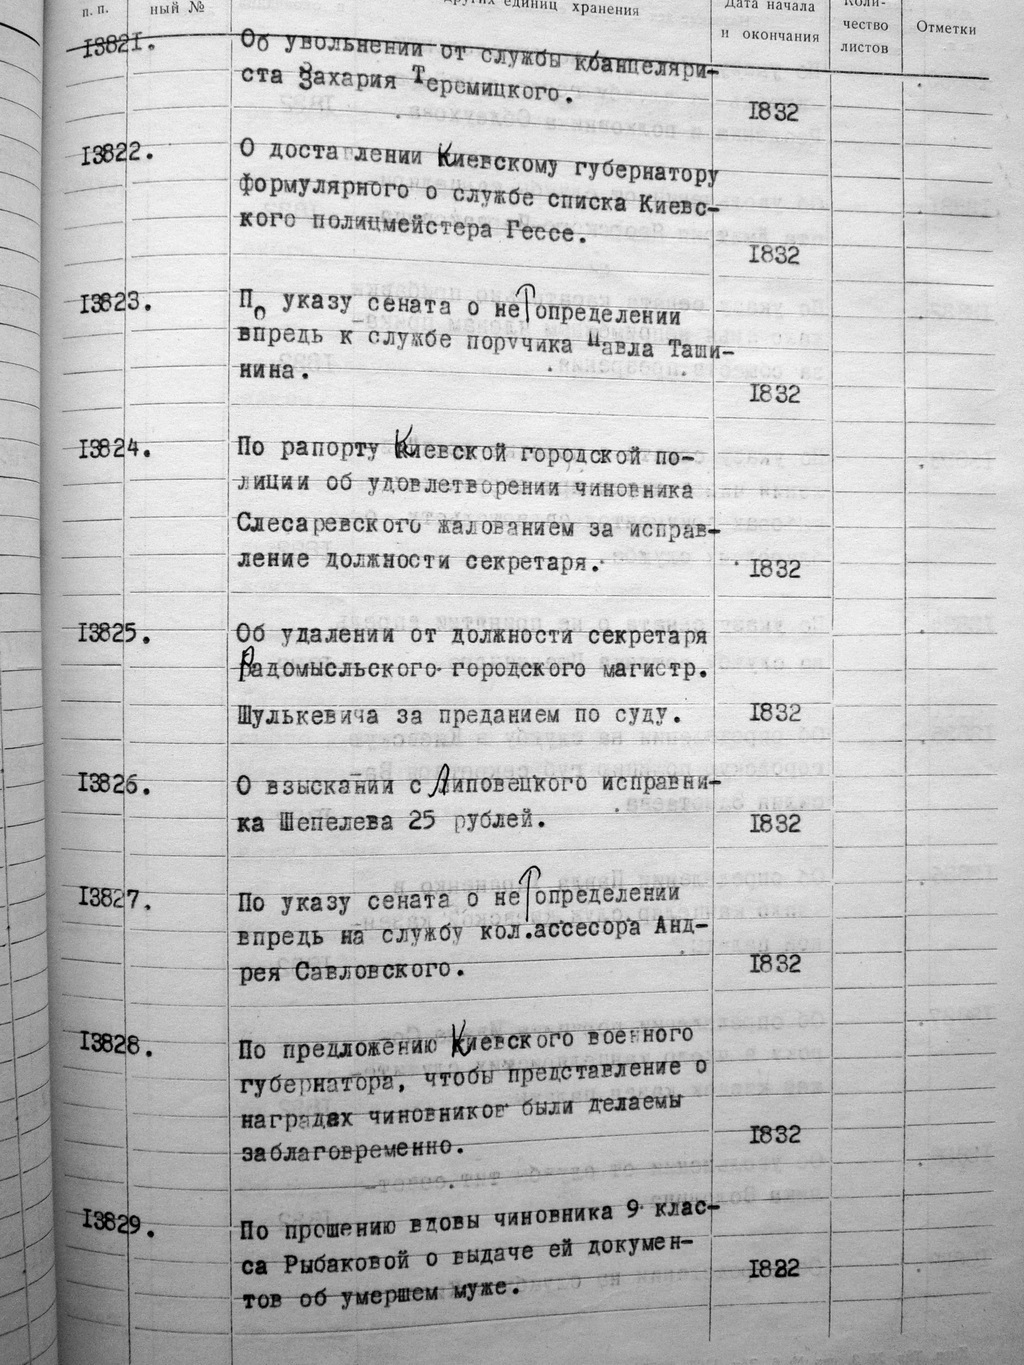 п. п.
ный №
других единиц хранения
Дата начала
и окончания
Коли-
чество
листов
Отметки
13821.
Об увольнении от службы канцеляри-
ста Захария Теремицкого.
1832
13822.
О доставлении Киевскому губернатору
формулярного о службе списка Киевс-
кого полицмейстера Гессе.
1832
13823.
По указу сената о не определении
впредь к службе поручика Павла Таши-
нина.
1832
13824.
По рапорту Киевской городской по-
лиции об удовлетворении чиновника
Слесаревского жалованием за исправ-
ление должности секретаря.
1832
13825.
Об удалении от должности секретаря
Радомысльского городского магистр.
Шулькевича за преданием по суду.
1832
13826.
О взыскании с Липовецкого исправни-
ка Шепелева 25 рублей.
1832
13827.
По указу сената о не определении
впредь на службу кол.ассесора Анд-
рея Савловского.
1832
13828.
По предложению Киевского военного
губернатора, чтобы представление о
наградах чиновников были делаемы
заблаговременно.
1832
13829.
По прошению вдовы чиновника 9 клас-
са Рыбаковой о выдаче ей докумен-
тов об умершем муже.
1832